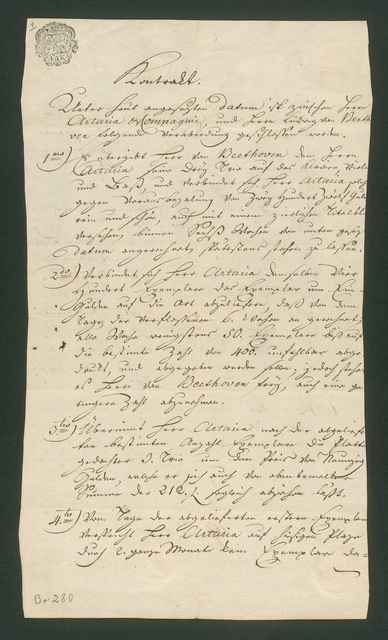 Kontrakt.
Unter heut angesezten Datum ist zwischen Herrn
Artaria et Compagnie, und Herrn Ludwig van Beetho
ven folgende Verabredung geschlossen worden.
1mo) Es übergibt Herr van Beethoven dem Herrn
Artaria seine Drey Trio auf das Klavier, Violin
und Bass, und verbindet sich Herr Artaria
gegen Vorausbezalung von Zwey Hundert
rein und schön, auf mit einem zierlichen Titelblat
versehen binnen Sechs Wochen von unten gesez
Datum angerechnet spätestens stechen zu lassen.
2do) Verbindet sich Herr Artaria demselben Vier
Hundert Exemplare das Exemplar um Ein
Gulden auf die Art abzuliefern, daß von dem
Tage der verflossenen 6. Wochen an gerechnet,
alle Woche wenigstens 50. Exemplare biß auf
die bestimte Zahl von 400. unfehlbar abge
druckt, und abgegeben werden sollen, jedoch stehet
es Herrn van Beethoven frey, auch eine ge
ringere Zahl abzunehmen.
3tio) Übernimt Herr Artaria nach der abgeliefer
ten bestimten Anzahl Exemplare die Platten
gedachter 3. Trio um den Preis von Neunzig
Gulden, welche er sich auch von obenbemelter
Summe der 212 f. sogleich abziehen läßt.
4to) Vom Tage der abgelieferten erstern Exemplare
verkauft Herr Artaria auf hiesigem Plaze
durch 2. ganze Monate kein Exemplar da-
Br 280